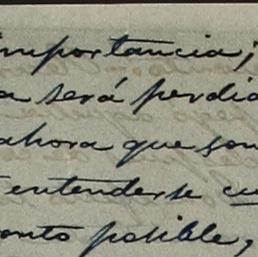 importancia;
a será perdi
ahora que son
entenderse cu
onto posible,